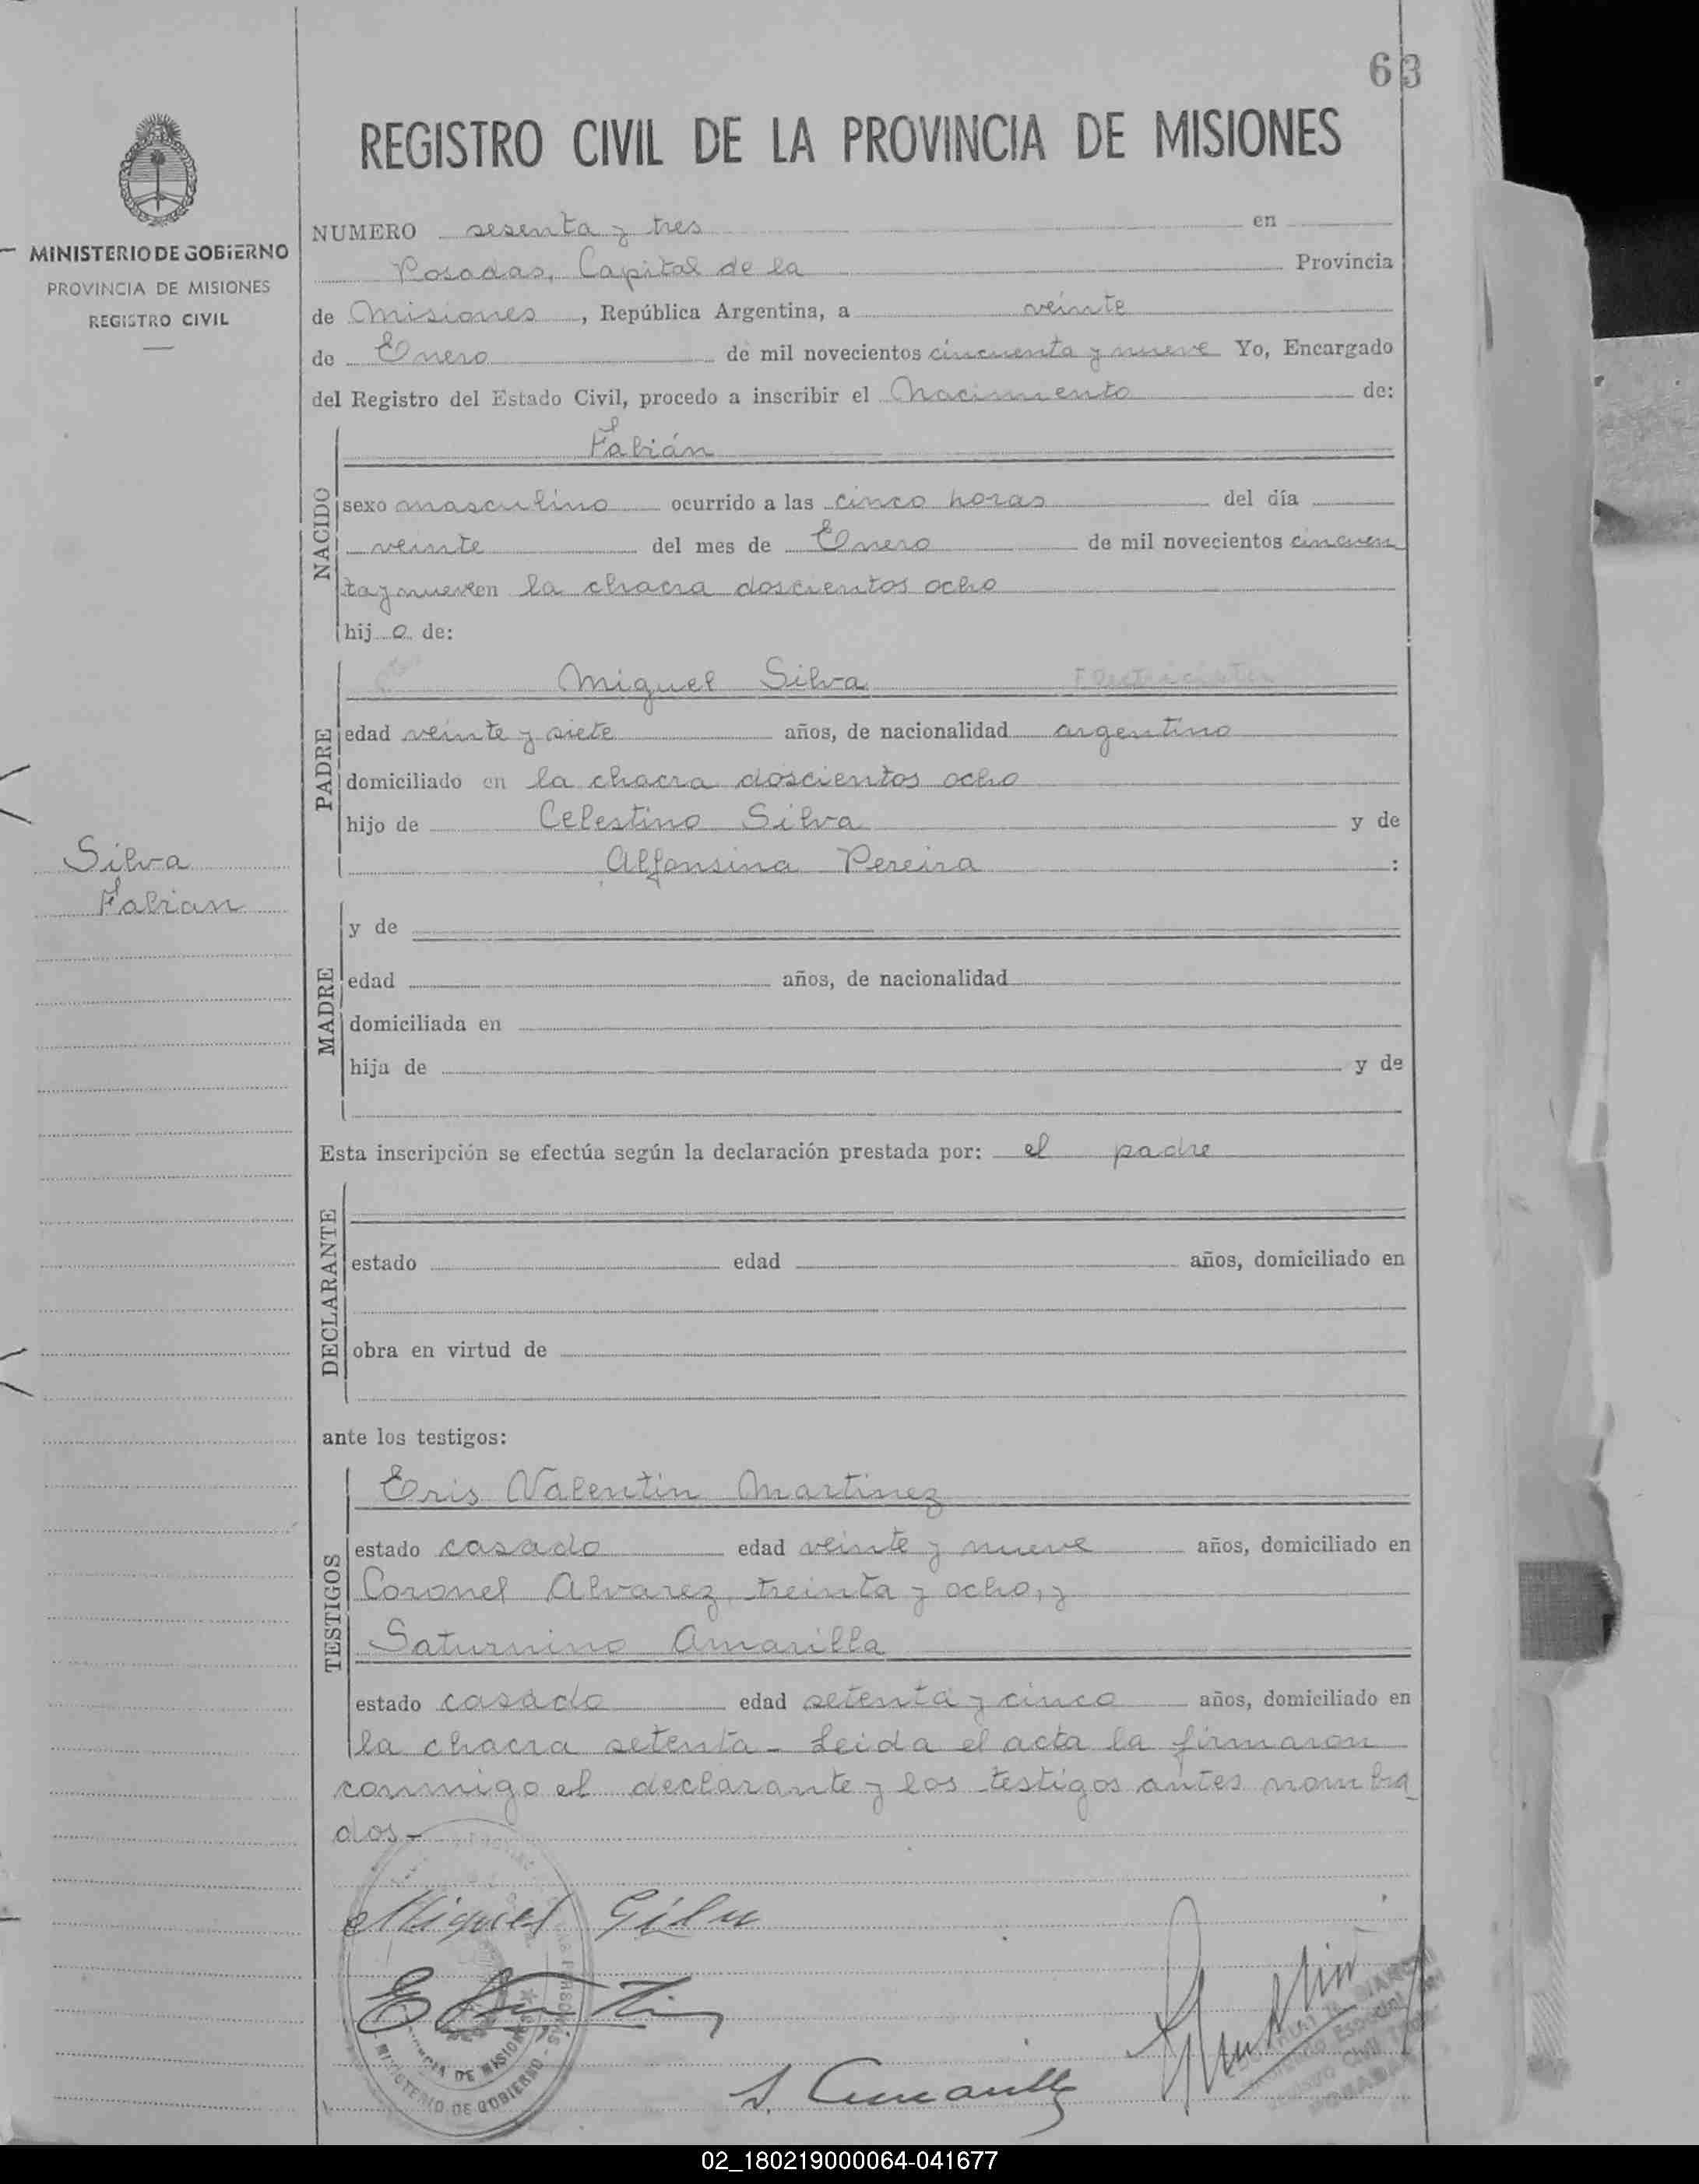 63
REGISTRO CIVIL DE LA PROVINCIA DE MISIONES
MINISTERIO DE GOBIERNO
PROVINCIA DE MISIONES
REGISTRO CIVIL
NUMERO sesenta y tres en
Posadas, Capital de la Provincia
de Misiones, República Argentina, a veinte
de Enero de mil novecientos cincuenta y nueve Yo, Encargado
del Registro del Estado Civil, procedo a inscribir el Nacimiento de:
NACIDO
Fabián
sexo masculino ocurrido a las cinco horas del día
veinte del mes de Enero de mil novecientos cincuen
ta y nueve en la chacra doscientos ocho
hijo de:
PADRE
Miguel Silva
edad veinte y siete años, de nacionalidad argentino
domiciliado en la chacra doscientos ocho
hijo de Celestino Silva y de
Alfonsina Pereira :
Silva
Fabian
MADRE
y de
edad años, de nacionalidad
domiciliada en
hija de y de
Esta inscripción se efectúa según la declaración prestada por: el padre
DECLARANTE
estado edad años, domiciliado en
obra en virtud de
ante los testigos:
TESTIGOS
Eris Valentin Martinez
estado casado edad veinte y nueve años, domiciliado en
Coronel Alvarez treinta y ocho, y
Saturnino Amarilla
estado casado edad setenta y cinco años, domiciliado en
la chacra setenta - Leida el acta la firmaron
conmigo el declarante y los testigos antes nombra
dos -
Miguel Silva
S. Amarilla
MINISTERIO DE GOBIERNO
02_180219000064-041677